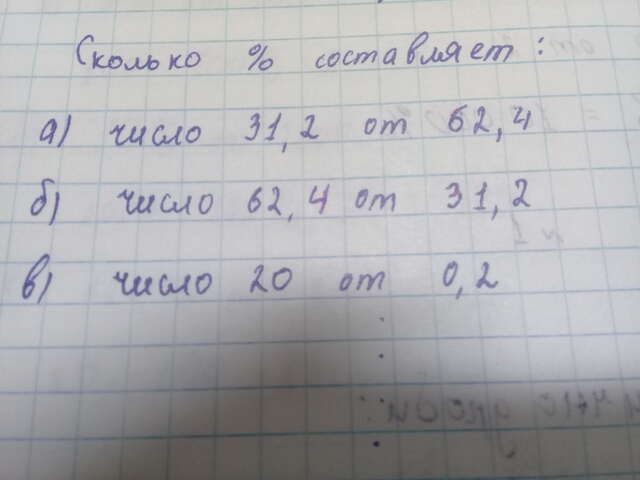 Сколько % составляет:
а) число 31,2 от 62,4
б) число 62,4 от 31,2
в) число 20 от 0,2